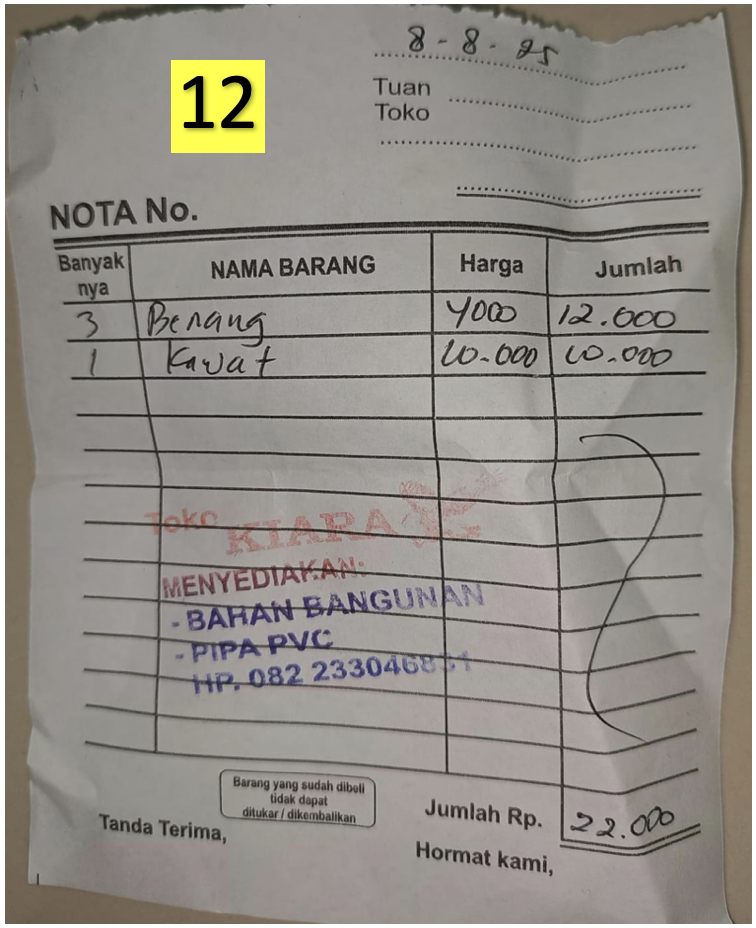 8-8-25
12
Tuan
Toko
NOTA No.
Banyak nya NAMA BARANG Harga Jumlah
3 Benang 4000 12.000
1 Kawat 10.000 10.000
Toko KIARA
MENYEDIAKAN:
- BAHAN BANGUNAN
- PIPA PVC
HP. 082 233046831
Barang yang sudah dibeli
tidak dapat
ditukar / dikembalikan
Jumlah Rp. 22.000
Tanda Terima,
Hormat kami,